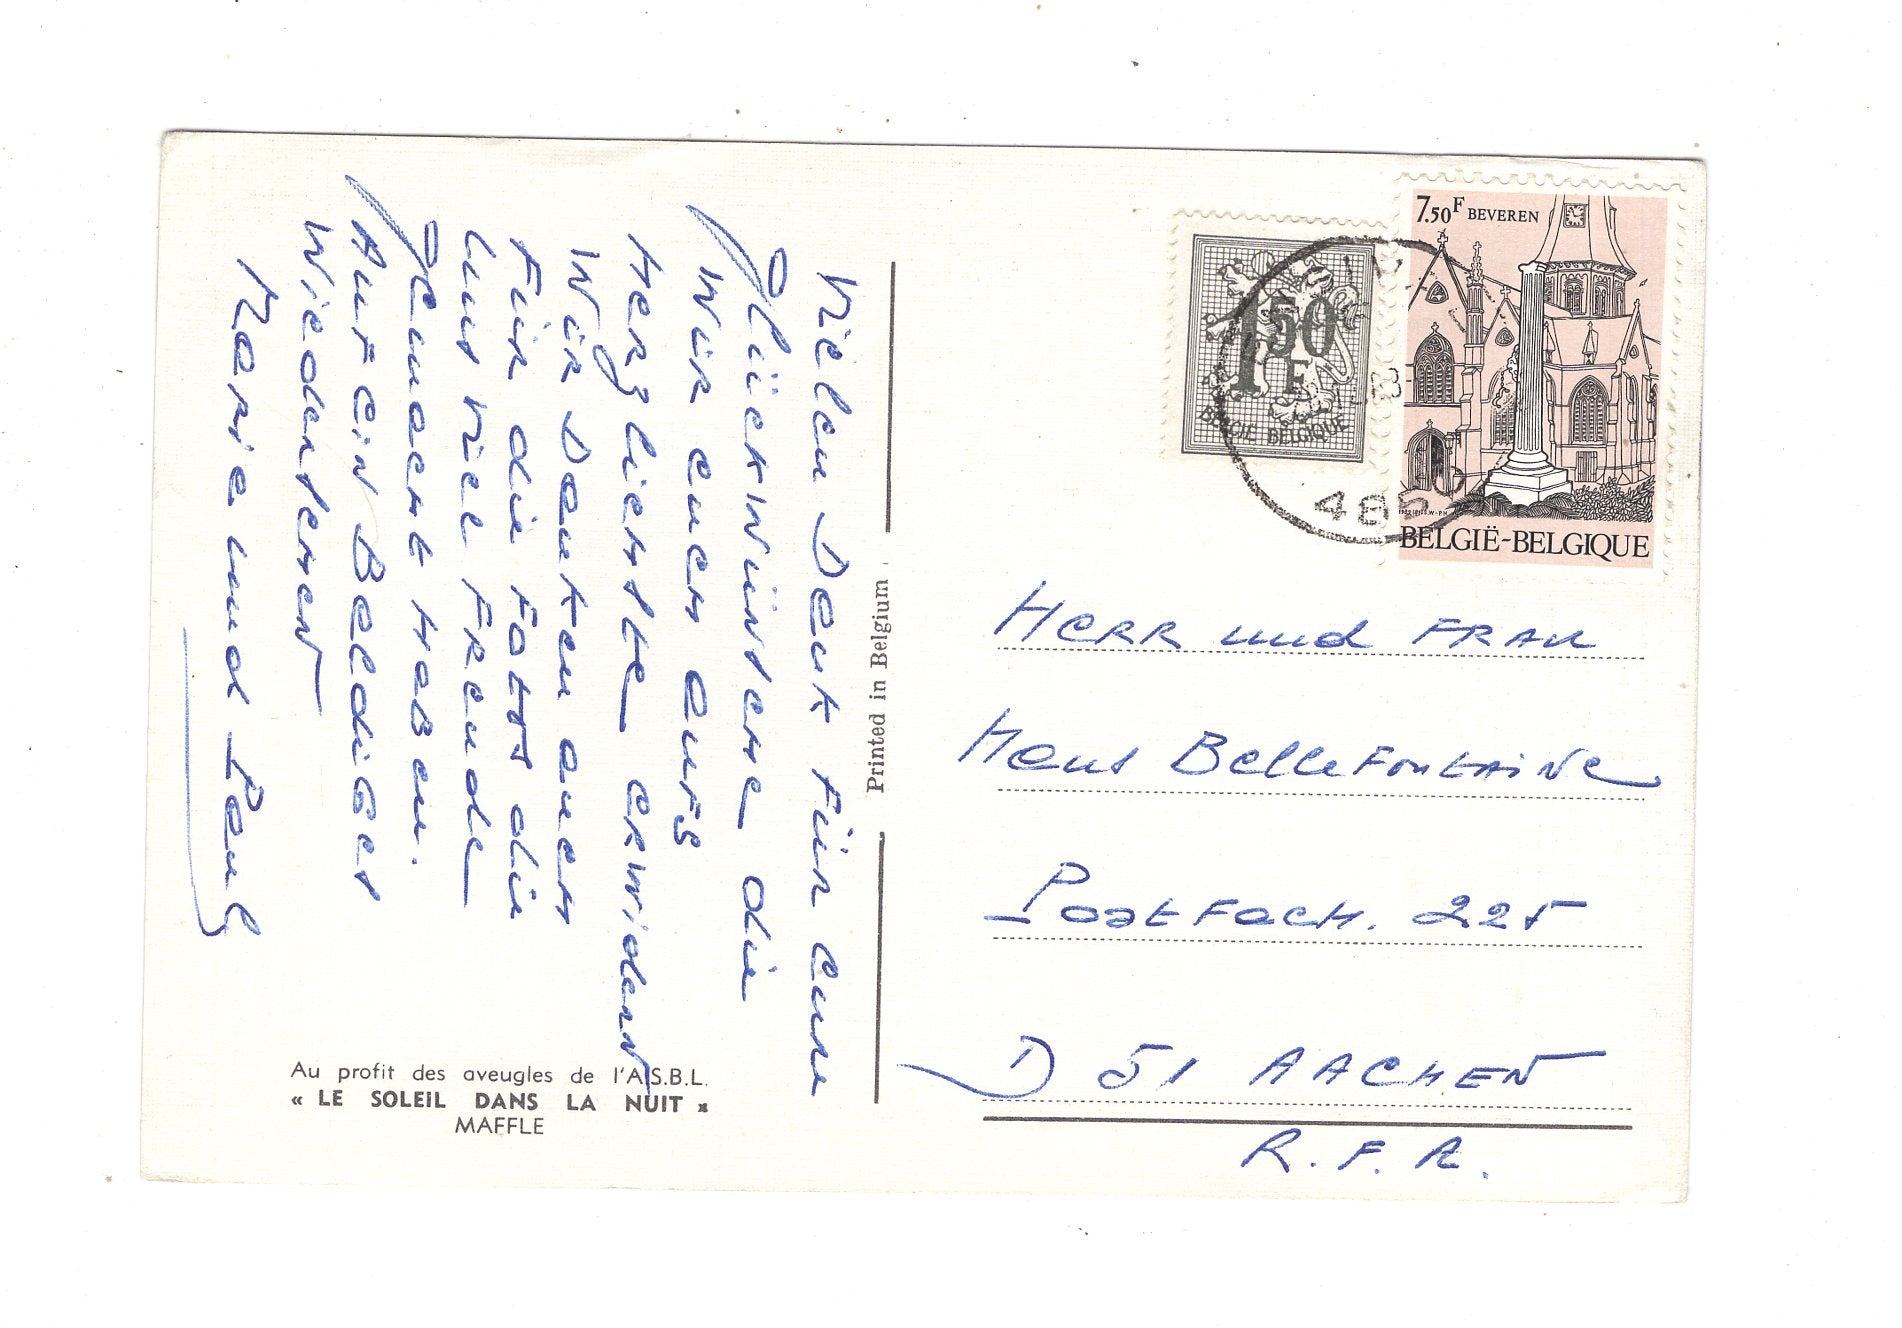 Vielen Dank Für Eure
Glückwünsche die
Wir euch aufs
Herzlichste erwidern
Wir Danken auch
Für die Fotos die
uns viel Freude
gemacht Haben.
Auf ein Baldiges
Wiedersehen
Marie und Paul
Au profit des aveugles de l'A.S.B.L.
« LE SOLEIL DANS LA NUIT »
MAFFLE
Printed in Belgium
1 50 F
BELGIE BELGIQUE
7.50F BEVEREN
BELGIË-BELGIQUE
4850
Herr und FRAU
Hans BelleFontaine
Postfach. 225
D 51 AACHEN
R.F.A.